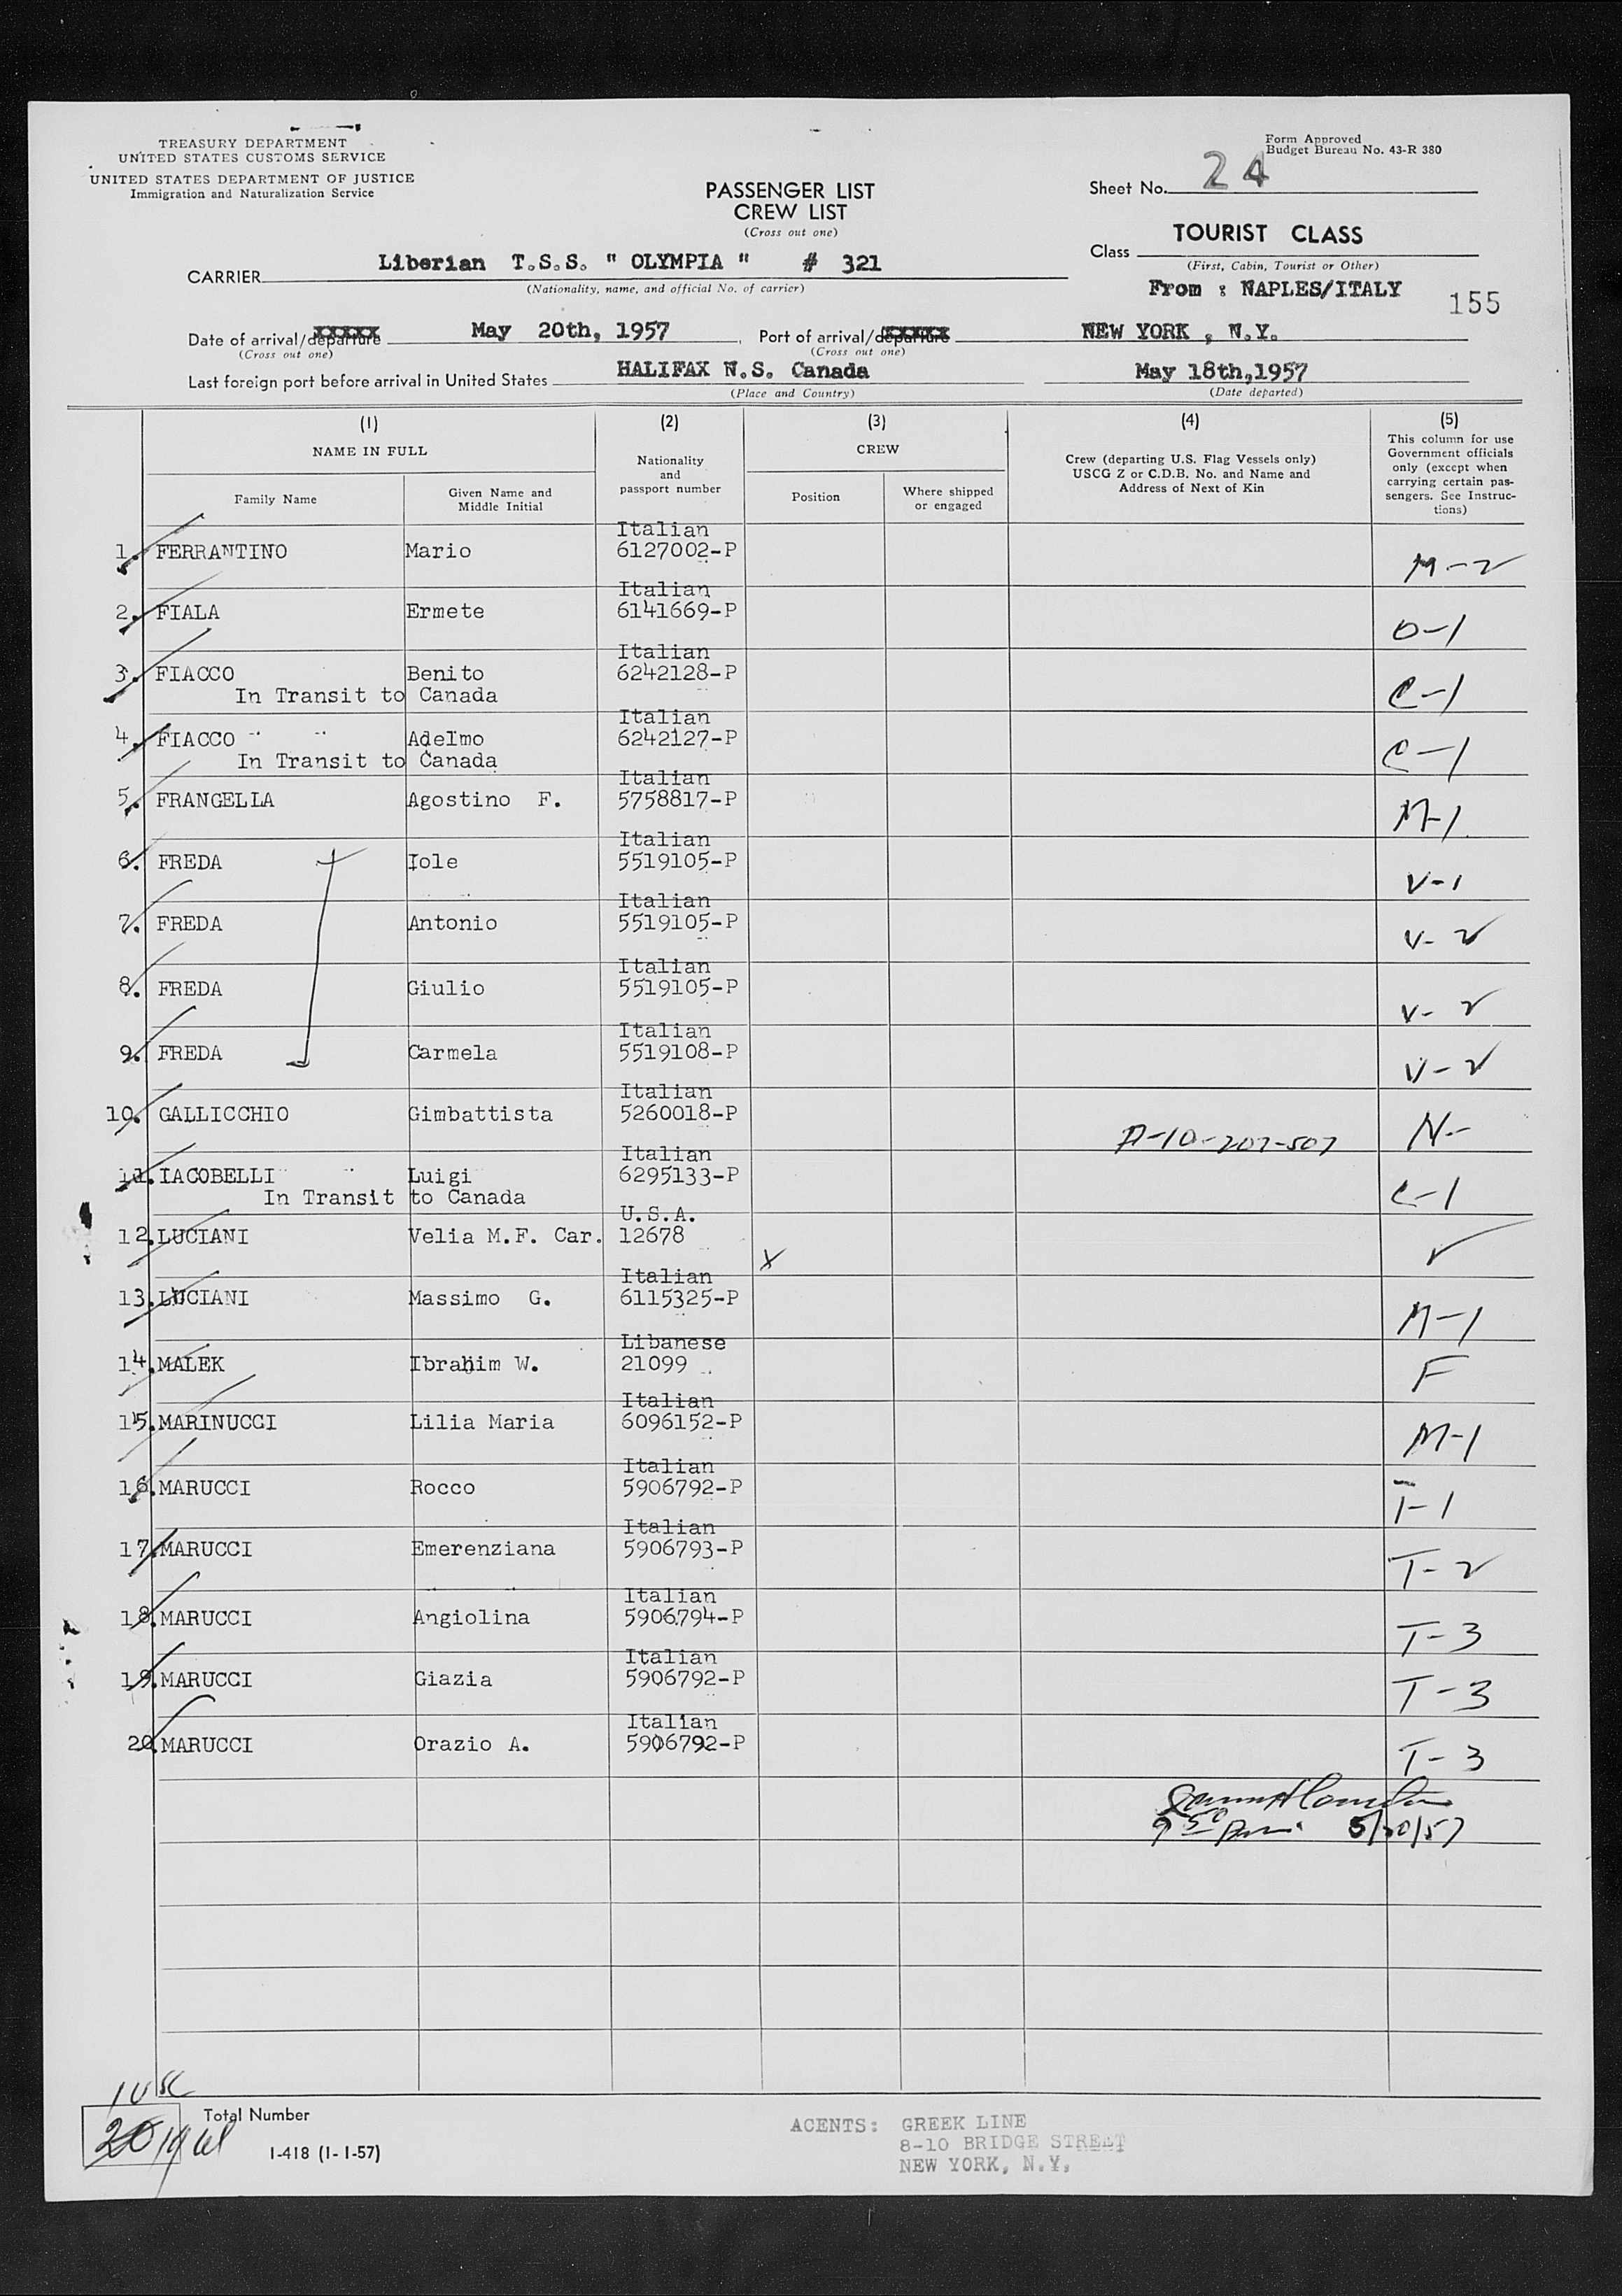 TREASURY DEPARTMENT
UNITED STATES CUSTOMS SERVICE
UNITED STATES DEPARTMENT OF JUSTICE
Immigration and Naturalization Service
Form Approved
Budget Bureau No. 43-R 380
PASSENGER LIST
CREW LIST
(Cross out one)
Sheet No. 24
Class TOURIST CLASS
(First, Cabin, Tourist or Other)
CARRIER Liberian T.S.S. " OLYMPIA " # 321
(Nationality, name, and official No. of carrier)
From : NAPLES/ITALY
155
Date of arrival/departure May 20th, 1957 Port of arrival/departure NEW YORK , N.Y.
(Cross out one) (Cross out one)
Last foreign port before arrival in United States HALIFAX N.S. Canada May 18th,1957
(Place and Country) (Date departed)
(1) (2) (3) (4) (5)
NAME IN FULL
Family Name
Given Name and Middle Initial
Nationality and passport number
CREW
Position
Where shipped or engaged
Crew (departing U.S. Flag Vessels only)
USCG Z or C.D.B. No. and Name and
Address of Next of Kin
This column for use
Government officials
only (except when
carrying certain pas-
sengers. See Instruc-
tions)
Italian
1. FERRANTINO Mario 6127002-P M-2
Italian
2. FIALA Ermete 6141669-P O-1
Italian
3. FIACCO Benito 6242128-P C-1
In Transit to Canada
Italian
4. FIACCO Adelmo 6242127-P C-1
In Transit to Canada
Italian
5. FRANGELLA Agostino F. 5758817-P M-1
Italian
6. FREDA Iole 5519105-P V-1
Italian
7. FREDA Antonio 5519105-P V-2
Italian
8. FREDA Giulio 5519105-P V-2
Italian
9. FREDA Carmela 5519108-P V-2
Italian
10. GALLICCHIO Gimbattista 5260018-P A-10-207-507 N-
Italian
11. IACOBELLI Luigi 6295133-P C-1
In Transit to Canada
U.S.A.
12. LUCIANI Velia M.F. Car. 12678 X
Italian
13. LUCIANI Massimo G. 6115325-P M-1
Libanese
14. MALEK Ibrahim W. 21099 F
Italian
15. MARINUCCI Lilia Maria 6096152-P M-1
Italian
16. MARUCCI Rocco 5906792-P T-1
Italian
17. MARUCCI Emerenziana 5906793-P T-2
Italian
18. MARUCCI Angiolina 5906794-P T-3
Italian
19. MARUCCI Giazia 5906792-P T-3
Italian
20. MARUCCI Orazio A. 5906792-P T-3
5/20/57
1 USC
20 19
Total Number
I-418 (1-1-57)
AGENTS: GREEK LINE
8-10 BRIDGE STREET
NEW YORK, N.Y.